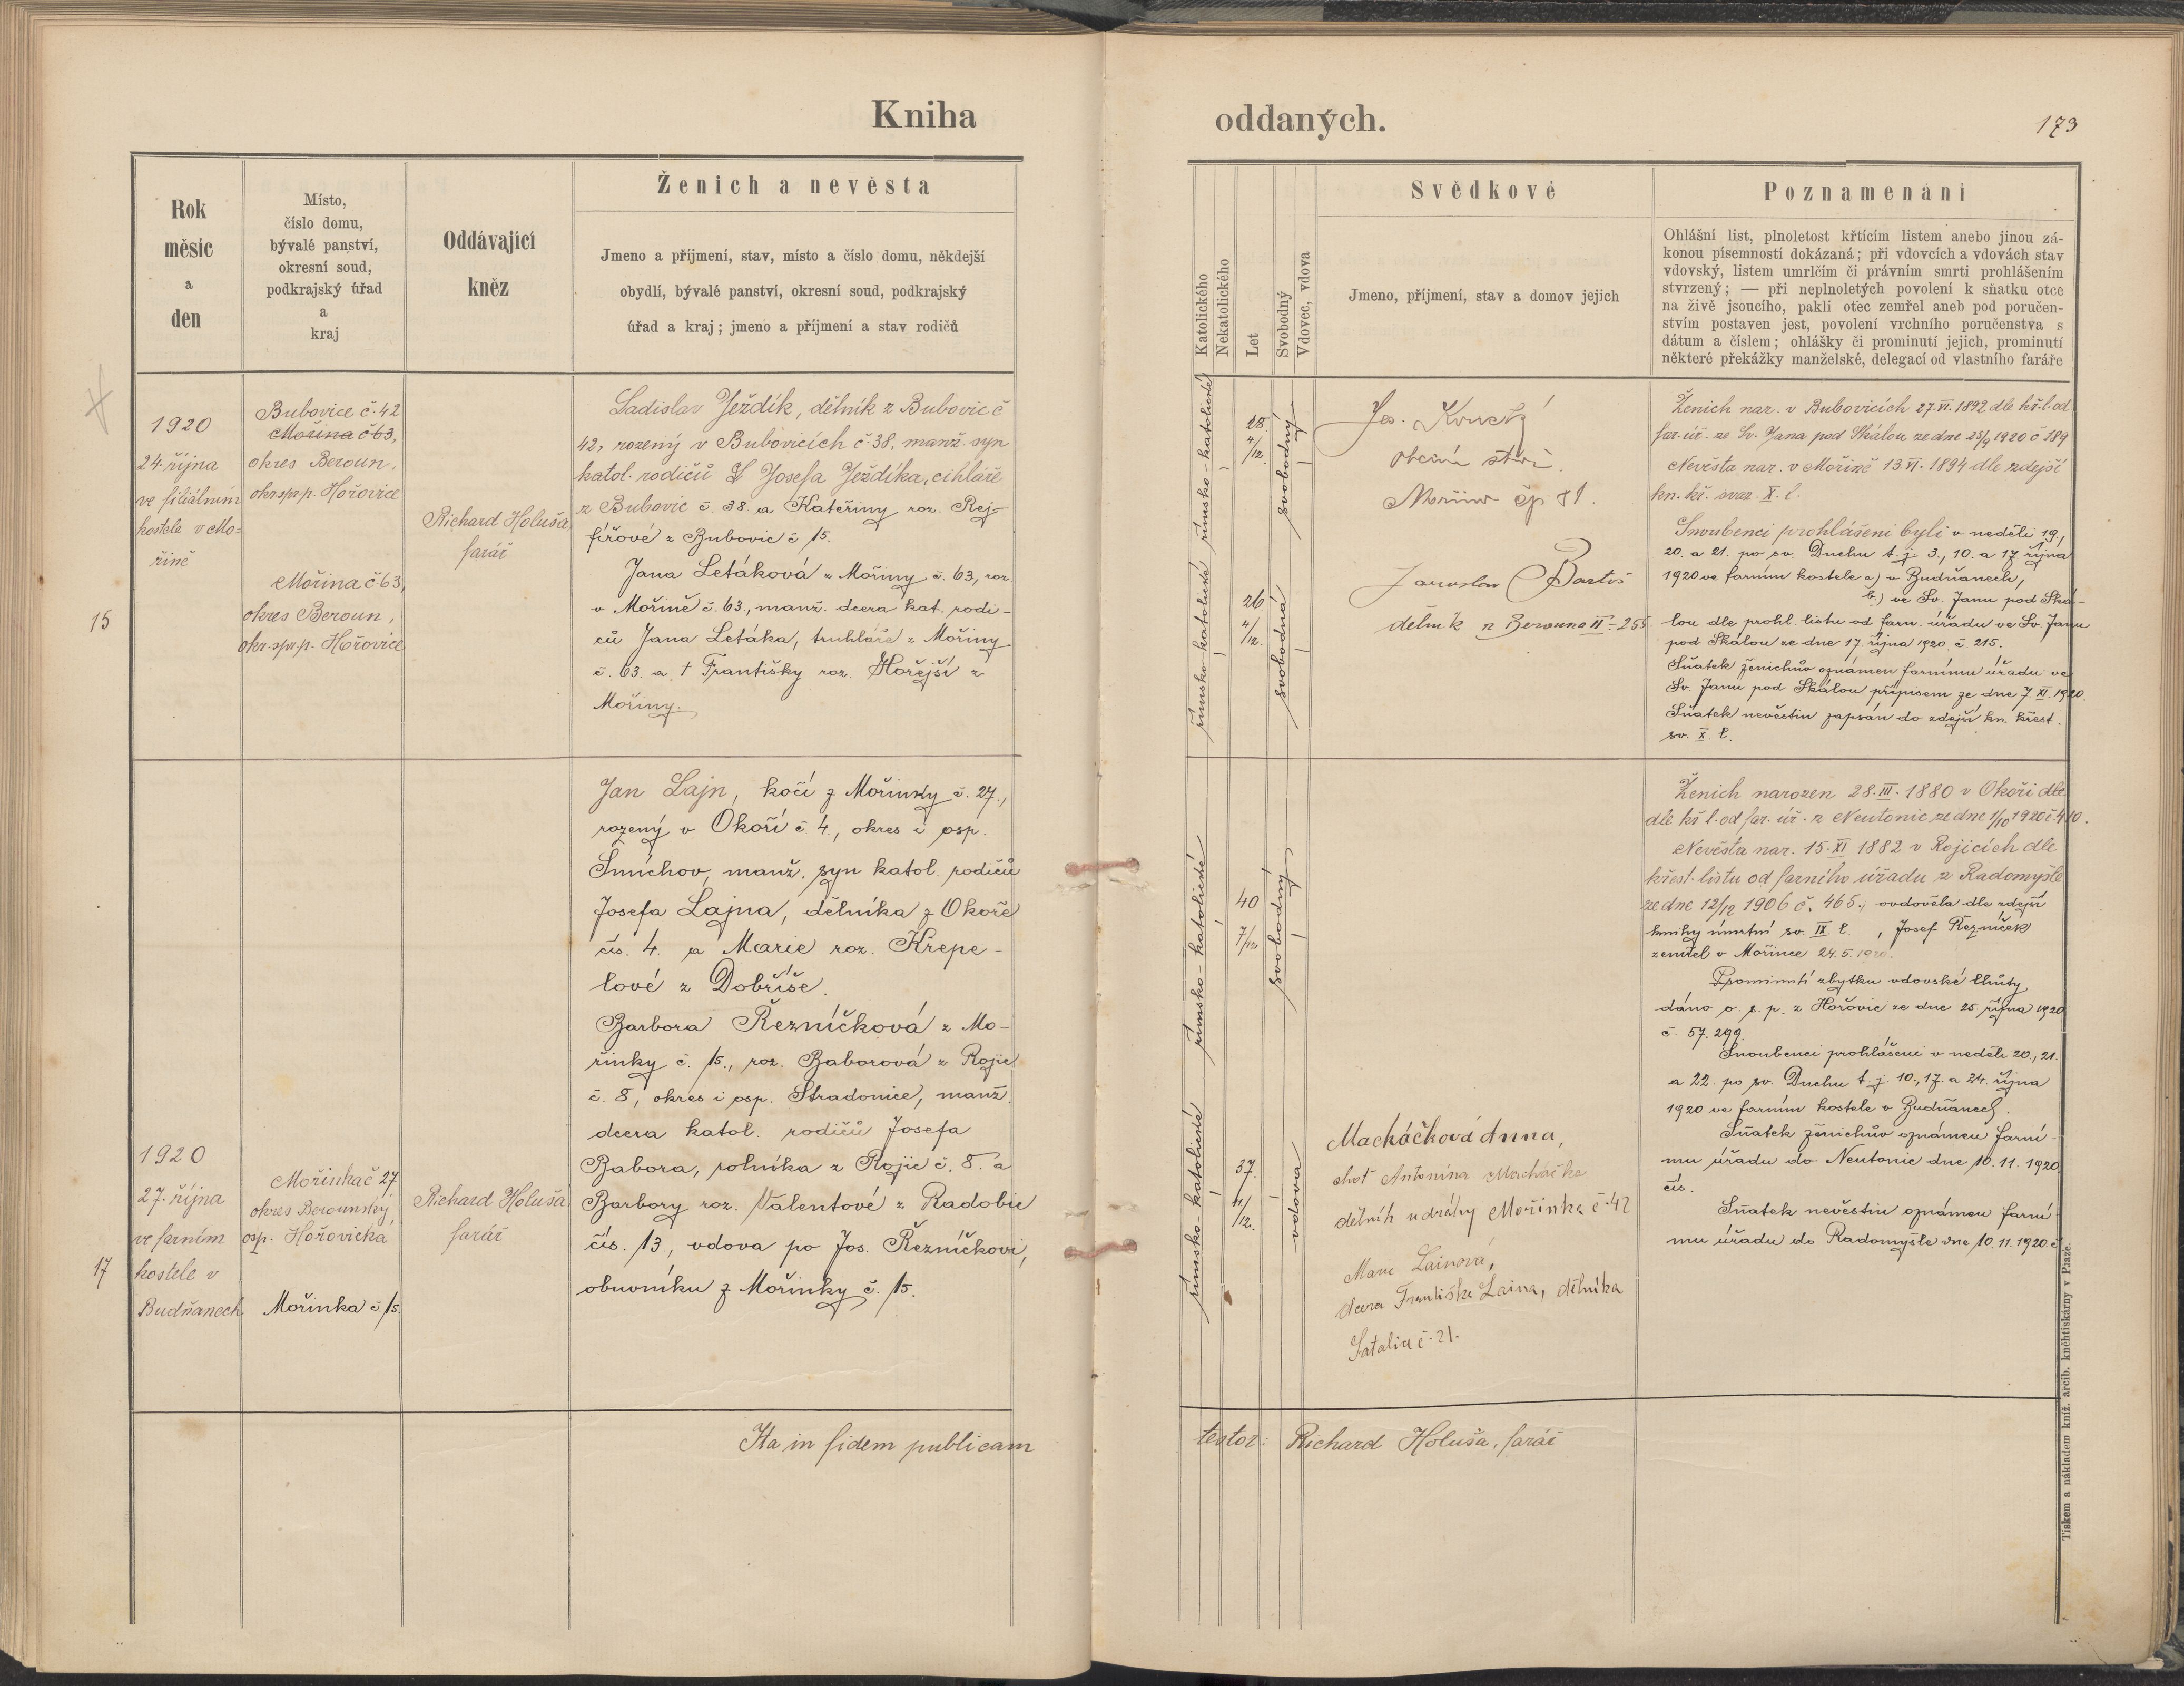 Kniha
oddaných.
173
Rok
měsíc
a
den
Místo,
číslo domu,
bývalé panství,
okresní soud,
podkrajský úřad
a
kraj
Oddávající
kněz
Ženich a nevěsta
Jmeno a příjmení, stav, místo a číslo domu, někdejší
obydlí, bývalé panství, okresní soud, podkrajský
úřad a kraj; jmeno a příjmení a stav rodičů
Katolického
Nekatolického
Let
Svobodný
Vdovec, vdova
Svědkové
Jmeno, příjmení, stav a domov jejich
Poznamenání
Ohlášní list, plnoletost křtícím listem anebo jinou zá-
konou písemností dokázaná; při vdovcích a vdovách stav
vdovský, listem umrlčím či právním smrti prohlášením
stvrzený; — při neplnoletých povolení k sňatku otce
na živě jsoucího, pakli otec zemřel aneb pod poručen-
stvím postaven jest, povolení vrchního poručenstva s
dátum a číslem; ohlášky či prominutí jejich, prominutí
některé překážky manželské, delegací od vlastního faráře
15
1920
24. října
ve filiálním
kostele v Mo-
řině
Bubovice č. 42
Mořina č 63,
okres Beroun,
okr. spr. p. Hořovice
Mořina č 63,
okres Beroun,
okr. spr. p. Hořovice
Richard Holuša
farář
Ladislav Ježdík, dělník z Bubovic č
42, rozený v Bubovicích č. 38, manž. syn
katol. rodičů Josefa Ježdíka, cihláře
z Bubovic č. 38 a Kateřiny roz. Rej-
fířové z Bubovic č 15.
Jana Letáková z Mořiny č. 63, roz.
v Mořině č. 63., manž. dcera kat. rodi-
čů Jana Letáka, truhláře z Mořiny
č. 63. a † Františky roz. Hořejší z
Mořiny.
římsko-katolické
28.
4/12.
svobodný
římsko katolické
26
4/12.
svobodná
Jos.
obecní
čp 81.
Jaroslav Bartoš
dělník z Berouna II - 255.
Ženich nar. v Bubovicích 27. VI. 1892 dle kř. l. od
far. úř. ze Sv. Jana pod Skálou ze dne 25/9 1920 č 189
Nevěsta nar. v Mořině 13. VI. 1894 dle zdejší
kn. kř. svaz. X. l.
Snoubenci prohlášeni byli v neděli 19,
20. a 21. po sv. Duchu t. j. 3., 10. a 17. října
1920 ve farním kostele a) v Budňanech,
b.) ve Sv. Janu pod Ská-
lou dle prohl. listu od farn. úřadu ve Sv. Janu
pod Skálou ze dne 17. října 1920. č. 215.
Sňatek ženichův oznámen farnímu úřadu ve
Sv. Janu pod Skálou přípisem ze dne 7. XI. 1920.
Sňatek nevěstin zapsán do zdejší kn. křest.
sv. X. l.
17
1920
27. října
ve farním
kostele v
Budňanech
Mořinka č 27,
okres Berounský,
osp. Hořovicka
Mořinka č. 15
Richard Holuša
farář
Jan Lajn, kočí z Mořinky č. 27.,
rozený v Okoři č. 4., okres i osp.
Smíchov, manž. syn katol. rodičů
Josefa Lajna, dělníka z Okoře
čís. 4. a Marie roz. Křepe-
lové z Dobříše.
Barbora Řezníčková z Mo-
řinky č. 15., roz. Baborová z Rojic
č. 8, okres i osp. Stradonice, manž.
dcera katol. rodičů Josefa
Babora, rolníka z Rojic č. 8. a
Barbory roz. Valentové z Radobic
čís. 13., vdova po Jos. Řezníčkovi,
obuvníku z Mořinky č. 15.
římsko-katolické
40
7/12
svobodný
římsko-katolické
37.
11/12.
vdova
Macháčková Anna,
choť Antonína Macháčka
dělník u dráhy Mořinka č. 42
Marie Lainová,
dcera Františka Laina, dělníka
Satalice č. 21.
Ženich narozen 28. III. 1880 v Okoři dle
dle kř l. od far. úř. z Neutonic ze dne 1/10 1920 č. 410.
Nevěsta nar. 15. XI 1882 v Rojicích dle
křest. listu od farního úřadu z Radomyšle
ze dne 12/12 1906 č. 465., ovdověla dle zdejší
knihy úmrtní sv. IX. l. , Josef Řezníček
zemřel v Mořince 24. 5. 1920.
Prominutí zbytku vdovské lhůty
dáno o. s. p. z Hořovic ze dne 25. října 1920
č. 57.299.
Snoubenci prohlášeni v neděli 20., 21.
a 22. po sv. Duchu t. j. 10., 17. a 24. října
1920 ve farním kostele v Budňanech.
Sňatek ženichův oznámen farní-
mu úřadu do Neutonic dne 10. 11. 1920
čís.
Sňatek nevěstin oznámen farní
mu úřadu do Radomyšle dne 10. 11. 1920 č
Ita in fidem publicam
testor: Richard Holuša, farář
Tiskem a nákladem kníž. arcib. knihtiskárny v Praze.